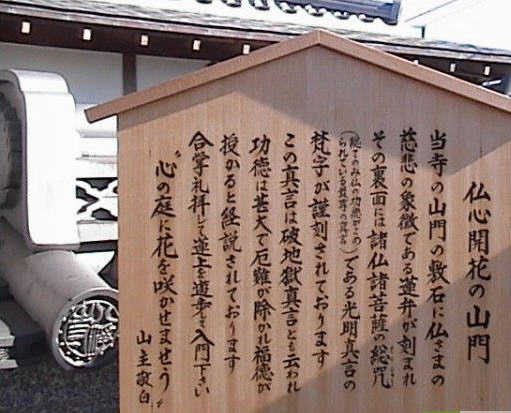 仏心開花の山門
当寺の山門の敷石に仏さまの
慈悲の象徴である蓮弁が刻まれ
その裏面には諸仏諸菩薩の総咒
である光明真言の
梵字が謹刻されております
この真言は破地獄真言とも云われ
功徳は甚大で厄難が除かれ福徳が
授かると経説されております
合掌礼拝して蓮上を進歩で入門下さい
〝心の庭に花を咲かせませう〟
山主敬白